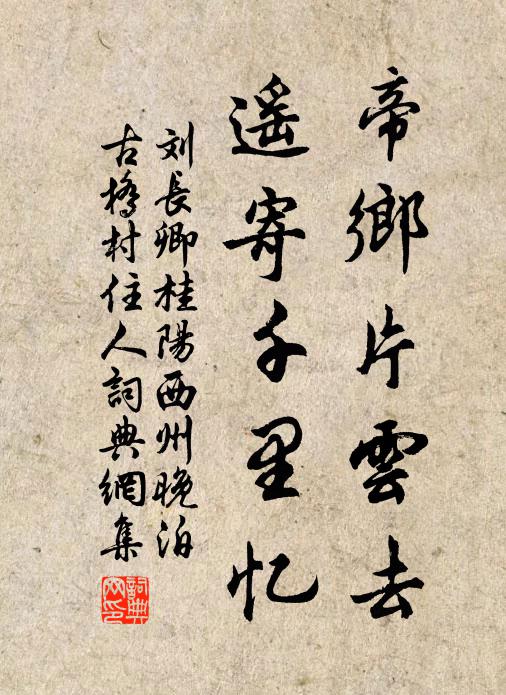 帝鄉片雲去
遥寄千里忆
刘長卿桂陽西州晚泊
古橋村住人詞典網集
詞典网印